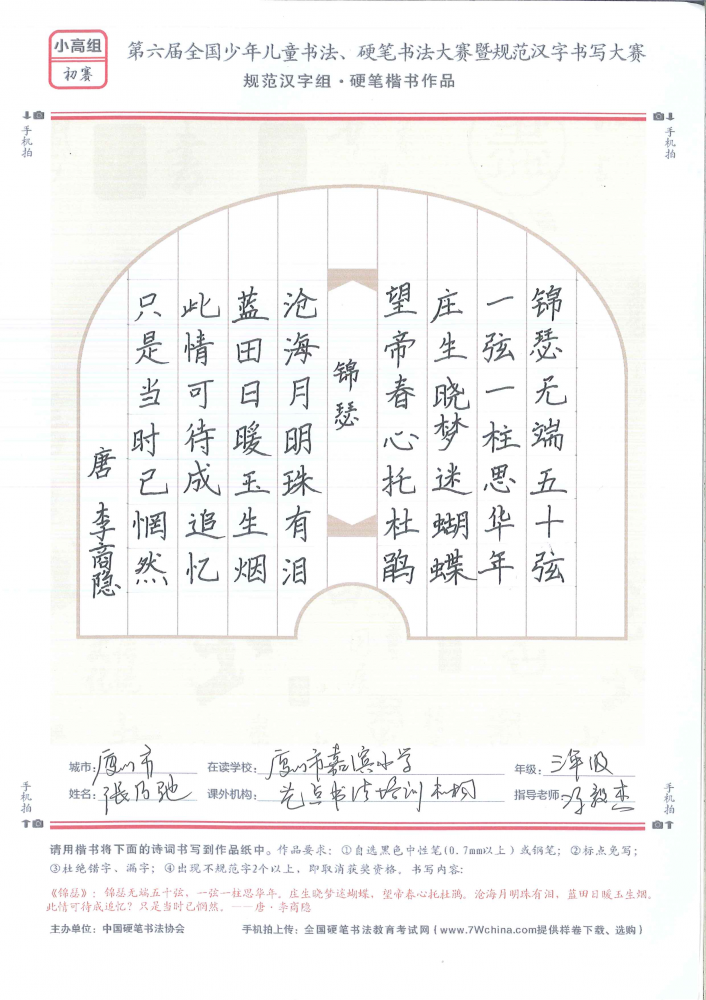 小高组
初赛
第六届全国少年儿童书法、硬笔书法大赛暨规范汉字书写大赛
规范汉字组·硬笔楷书作品
手机拍
手机拍
锦瑟无端五十弦
一弦一柱思华年
庄生晓梦迷蝴蝶
望帝春心托杜鹃
锦瑟
沧海月明珠有泪
蓝田日暖玉生烟
此情可待成追忆
只是当时已惘然
唐 李商隐
城市:厦门市 在读学校:厦门市嘉滨小学 年级:三年级
姓名:张乃驰 课外机构:艺点书法培训机构 指导老师:
手机拍
手机拍
请用楷书将下面的诗词书写到作品纸中。作品要求:①自选黑色中性笔(0.7mm以上)或钢笔;②标点免写;
③杜绝错字、漏字;④出现不规范字2个以上,即取消获奖资格。书写内容:
《锦瑟》:锦瑟无端五十弦,一弦一柱思华年。庄生晓梦迷蝴蝶,望帝春心托杜鹃。沧海月明珠有泪,蓝田日暖玉生烟。
此情可待成追忆?只是当时已惘然。——唐·李商隐
主办单位:中国硬笔书法协会 手机拍上传:全国硬笔书法教育考试网(www.7Wchina.com提供样卷下载、选购)